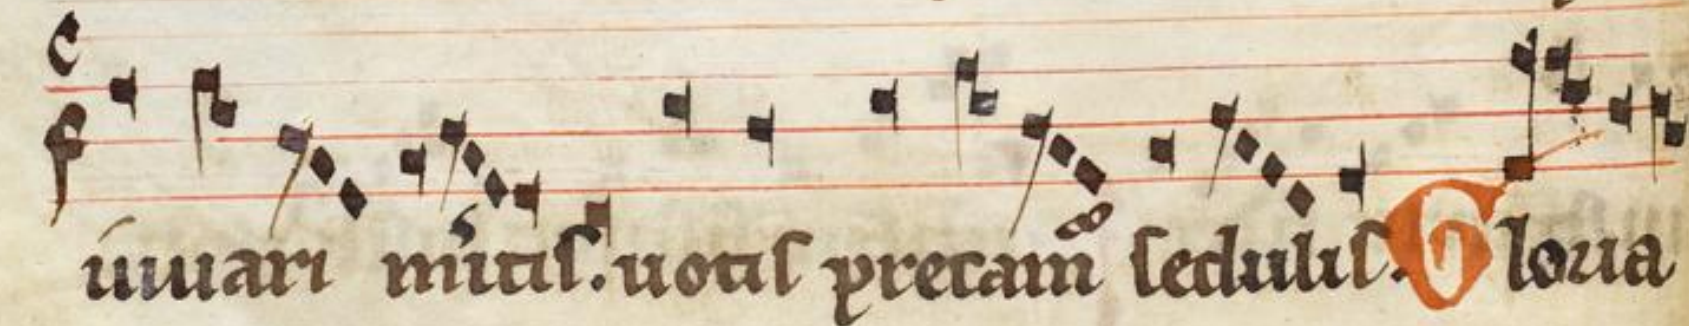 iuuari mitis. uotis precam sedulis. Gloria